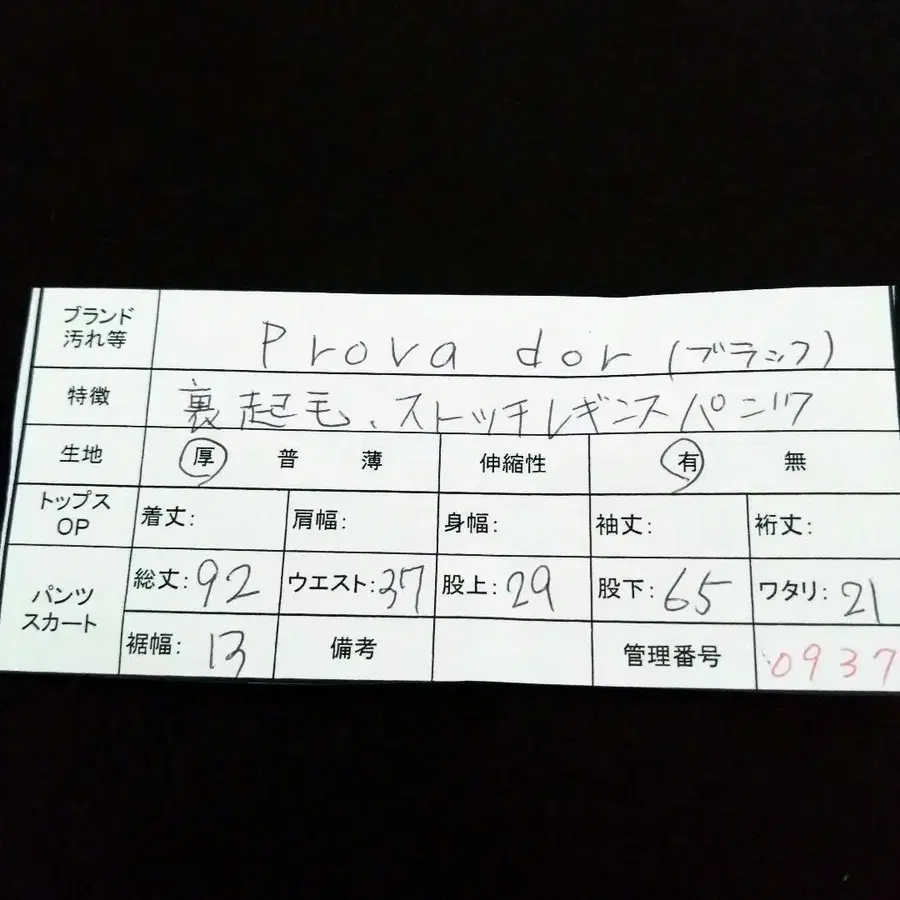 ブランド
汚れ等
Prova dor (ブラック)
特徴
裏起毛、ストッチレギンスパンツ
生地
厚 普 薄
伸縮性
有 無
トップス
OP
着丈:
肩幅:
身幅:
袖丈:
裄丈:
パンツ
スカート
総丈:92
ウエスト:37
股上:29
股下:65
ワタリ:21
裾幅:13
備考
管理番号
0937